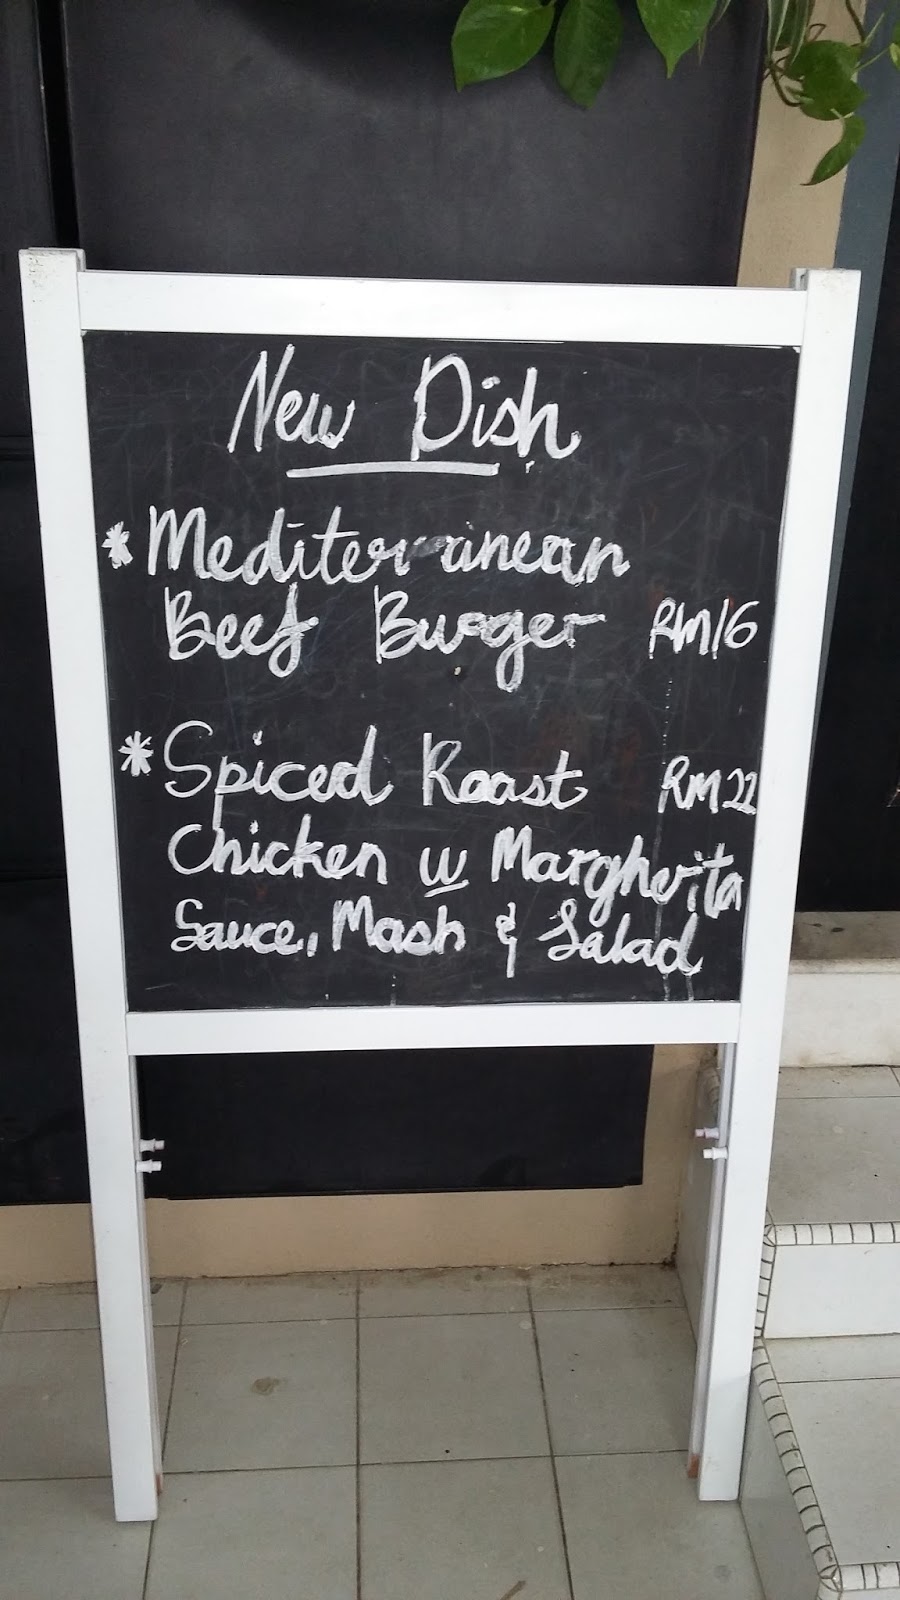 New Dish
* Mediterranean
Beef Burger RM16
* Spiced Roast RM22
Chicken w Margherita
Sauce, Mash & Salad